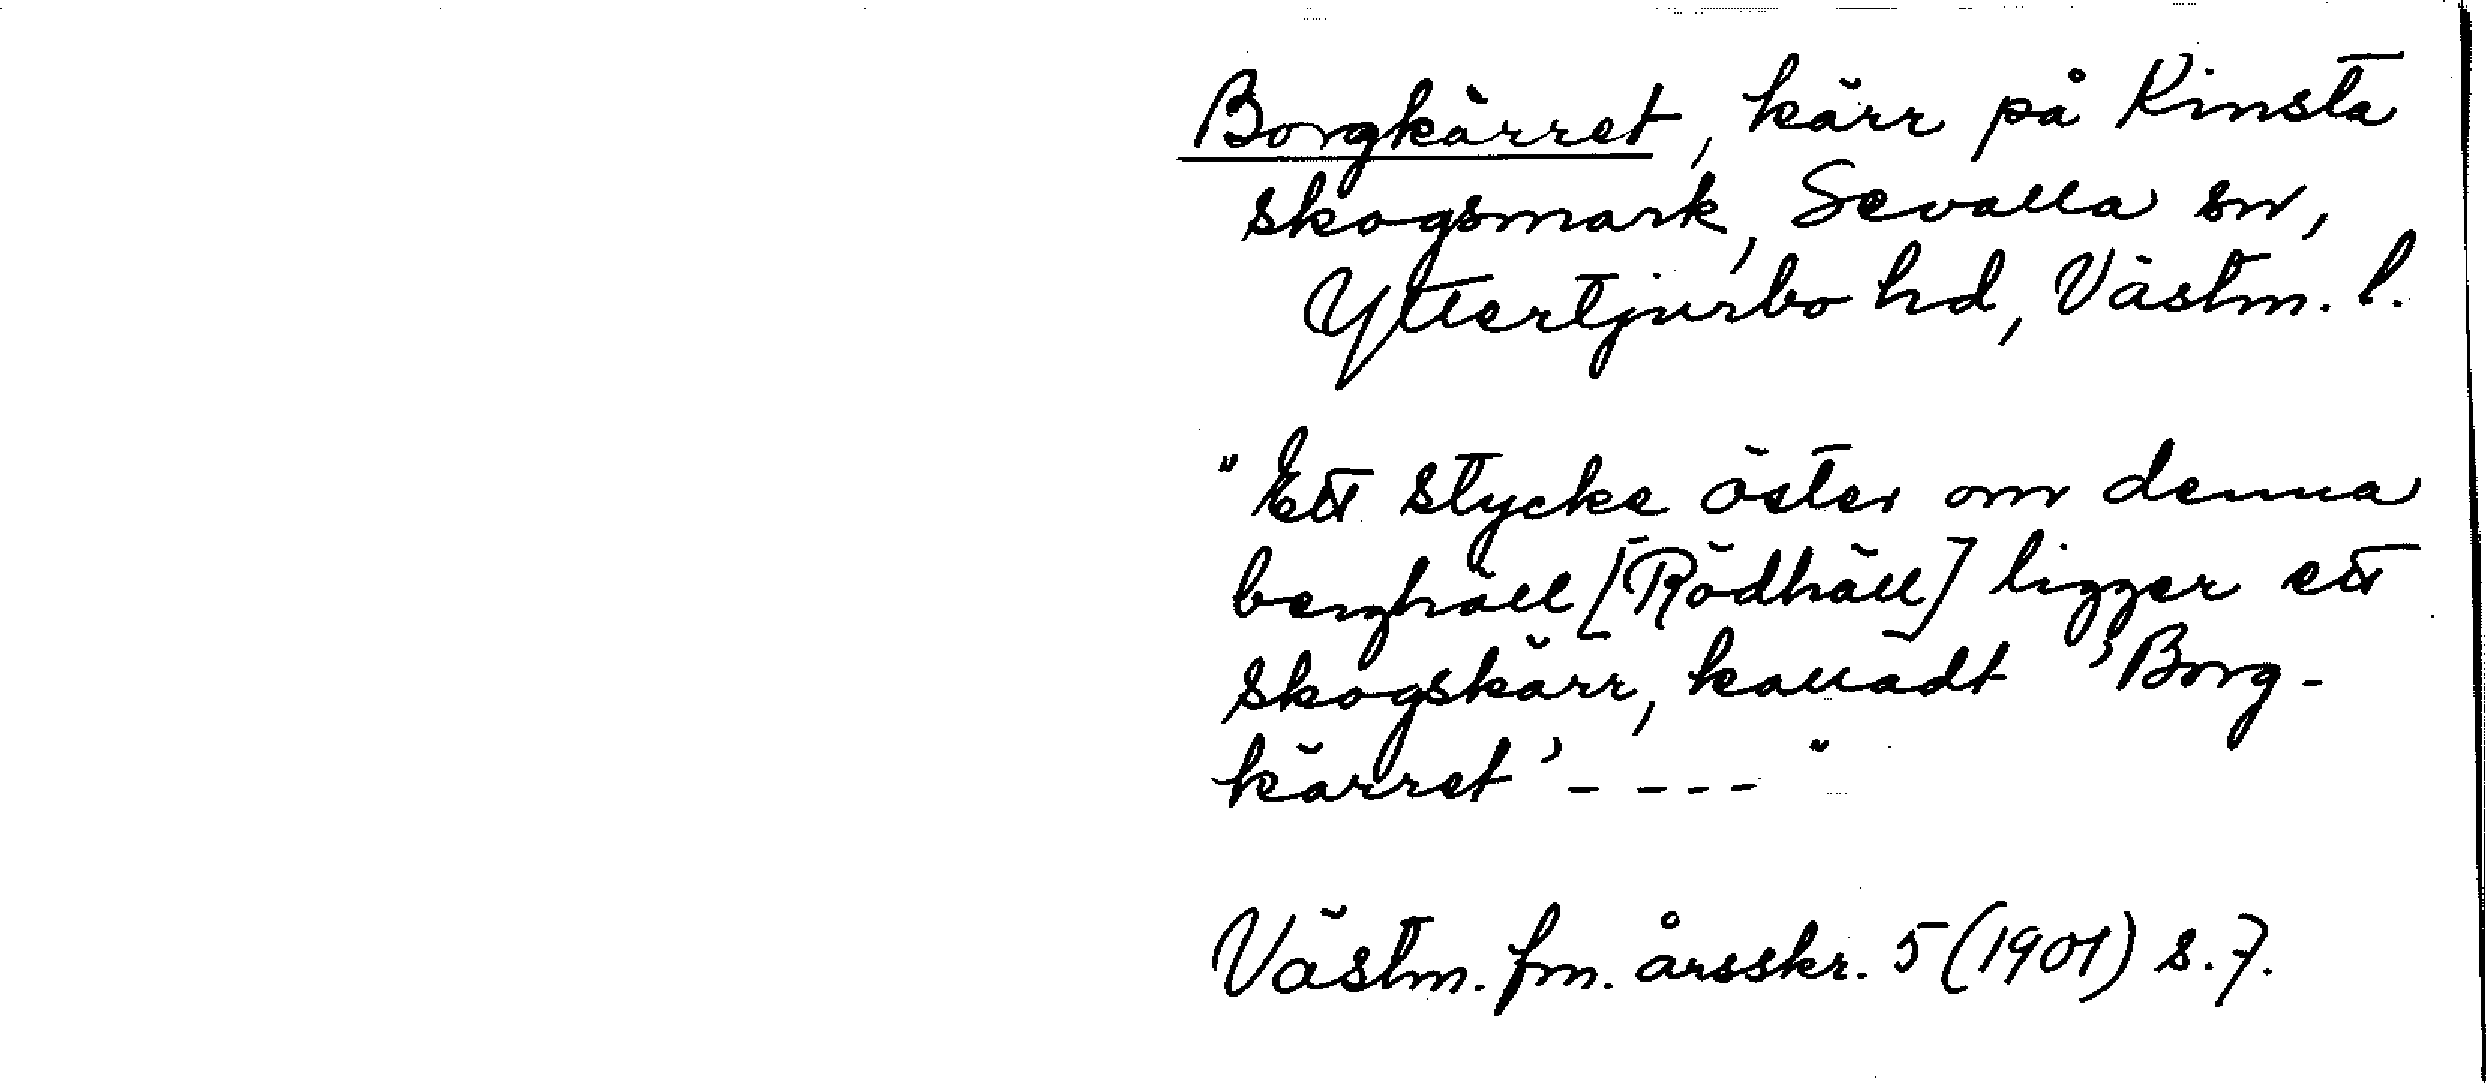 Borgkärret, kärr på Kinsta
skogsmark, Sevalla sn,
Yttertjurbo hd, Västm. l.
"Ett stycke öster om denna
berghäll [Rödhäll] ligger ett
skogskärr, kalladt 'Borg-
kärret' - - - - "
Västm. fm. årsskr. 5 (1901) s. 7.